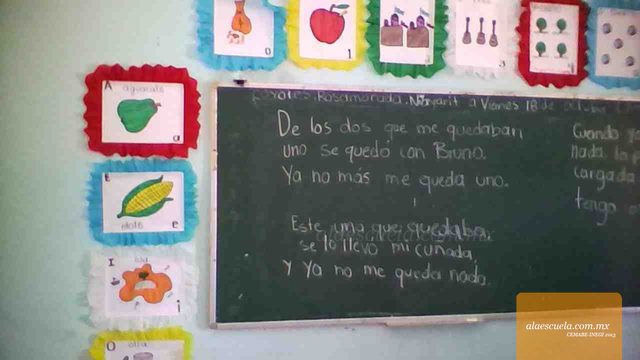 o
1
Rosamorada, Nayarit a Viernes 18 de octubre
De los dos que me quedaban
uno se quedó con Bruno.
Ya no más me queda uno.
1
Este uno que quedaba,
se lo llevó mi cuñada,
y ya no me queda nada.
Cuando
nada
cargada
tengo
A aguacate
a
E elote
e
I isla
i
O olla
alaescuela.com.mx
CEMABE-INEGI 2013